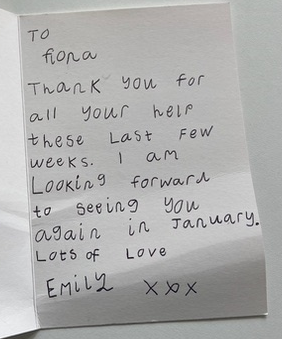 TO
fiona
Thank you for
all your help
these Last Few
weeks. I am
Looking forward
to seeing you
again in January.
Lots of Love
Emily xxx